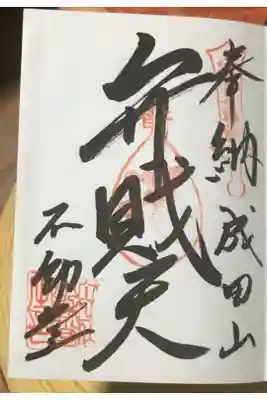 奉納成田山
弁財天
不動堂